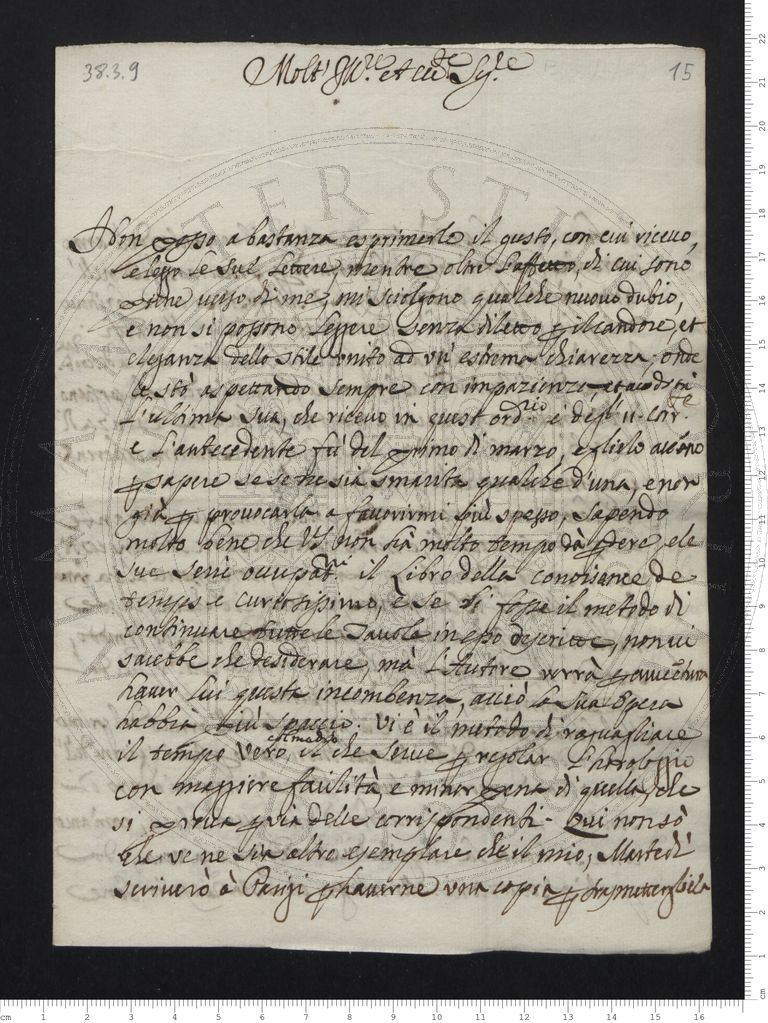 38.3.9
15
Molt' Ill.re et Ecc.te Sig.re
Non posso a bastanza esprimerle il gusto, con cui ricevo,
e leggo le sue lettere, mentre oltre l'affetto, di cui sono
piene verso di me, mi sciolgono qualche nuovo dubio,
e non si possono leggere senza diletto p il candore, et
eleganza dello stile unito ad un' estrema chiarezza; onde
le stò aspettando sempre con impazienza,
L'ultima sua, che ricevo in quest' ord.rio è degl' 11. Cor.te
e l'antecedente fù del primo di marzo, e glielo
p sapere se se ne sia smarita qualche d'una, e non
già p provocarla a favorirmi più spesso, sapendo
molto bene che VS non hà molto tempo dà pdere, e le
sue serie occupat.ni il Libro della conoisance de
temps è curiosissimo, e se si fosse il metodo di
continuare tutte le Tavole in esso descritte, non vi
sarebbe che desiderare, mà l'Autore vorrà p avventura
haver lui questa incombenza, acciò la sua opera
habbia più spaccio. Vi è il metodo di raguagliare
il tempo vero, col medio il che serve p regolar l'horologgio
con maggiore facilità, e minor pena di quella, che
si prova p via delle corrispondenti. Qui non sò
che ve ne sia altro esemplare che il mio; Martedì
scriverò à Parigi p haverne una copia p trasmettergliela